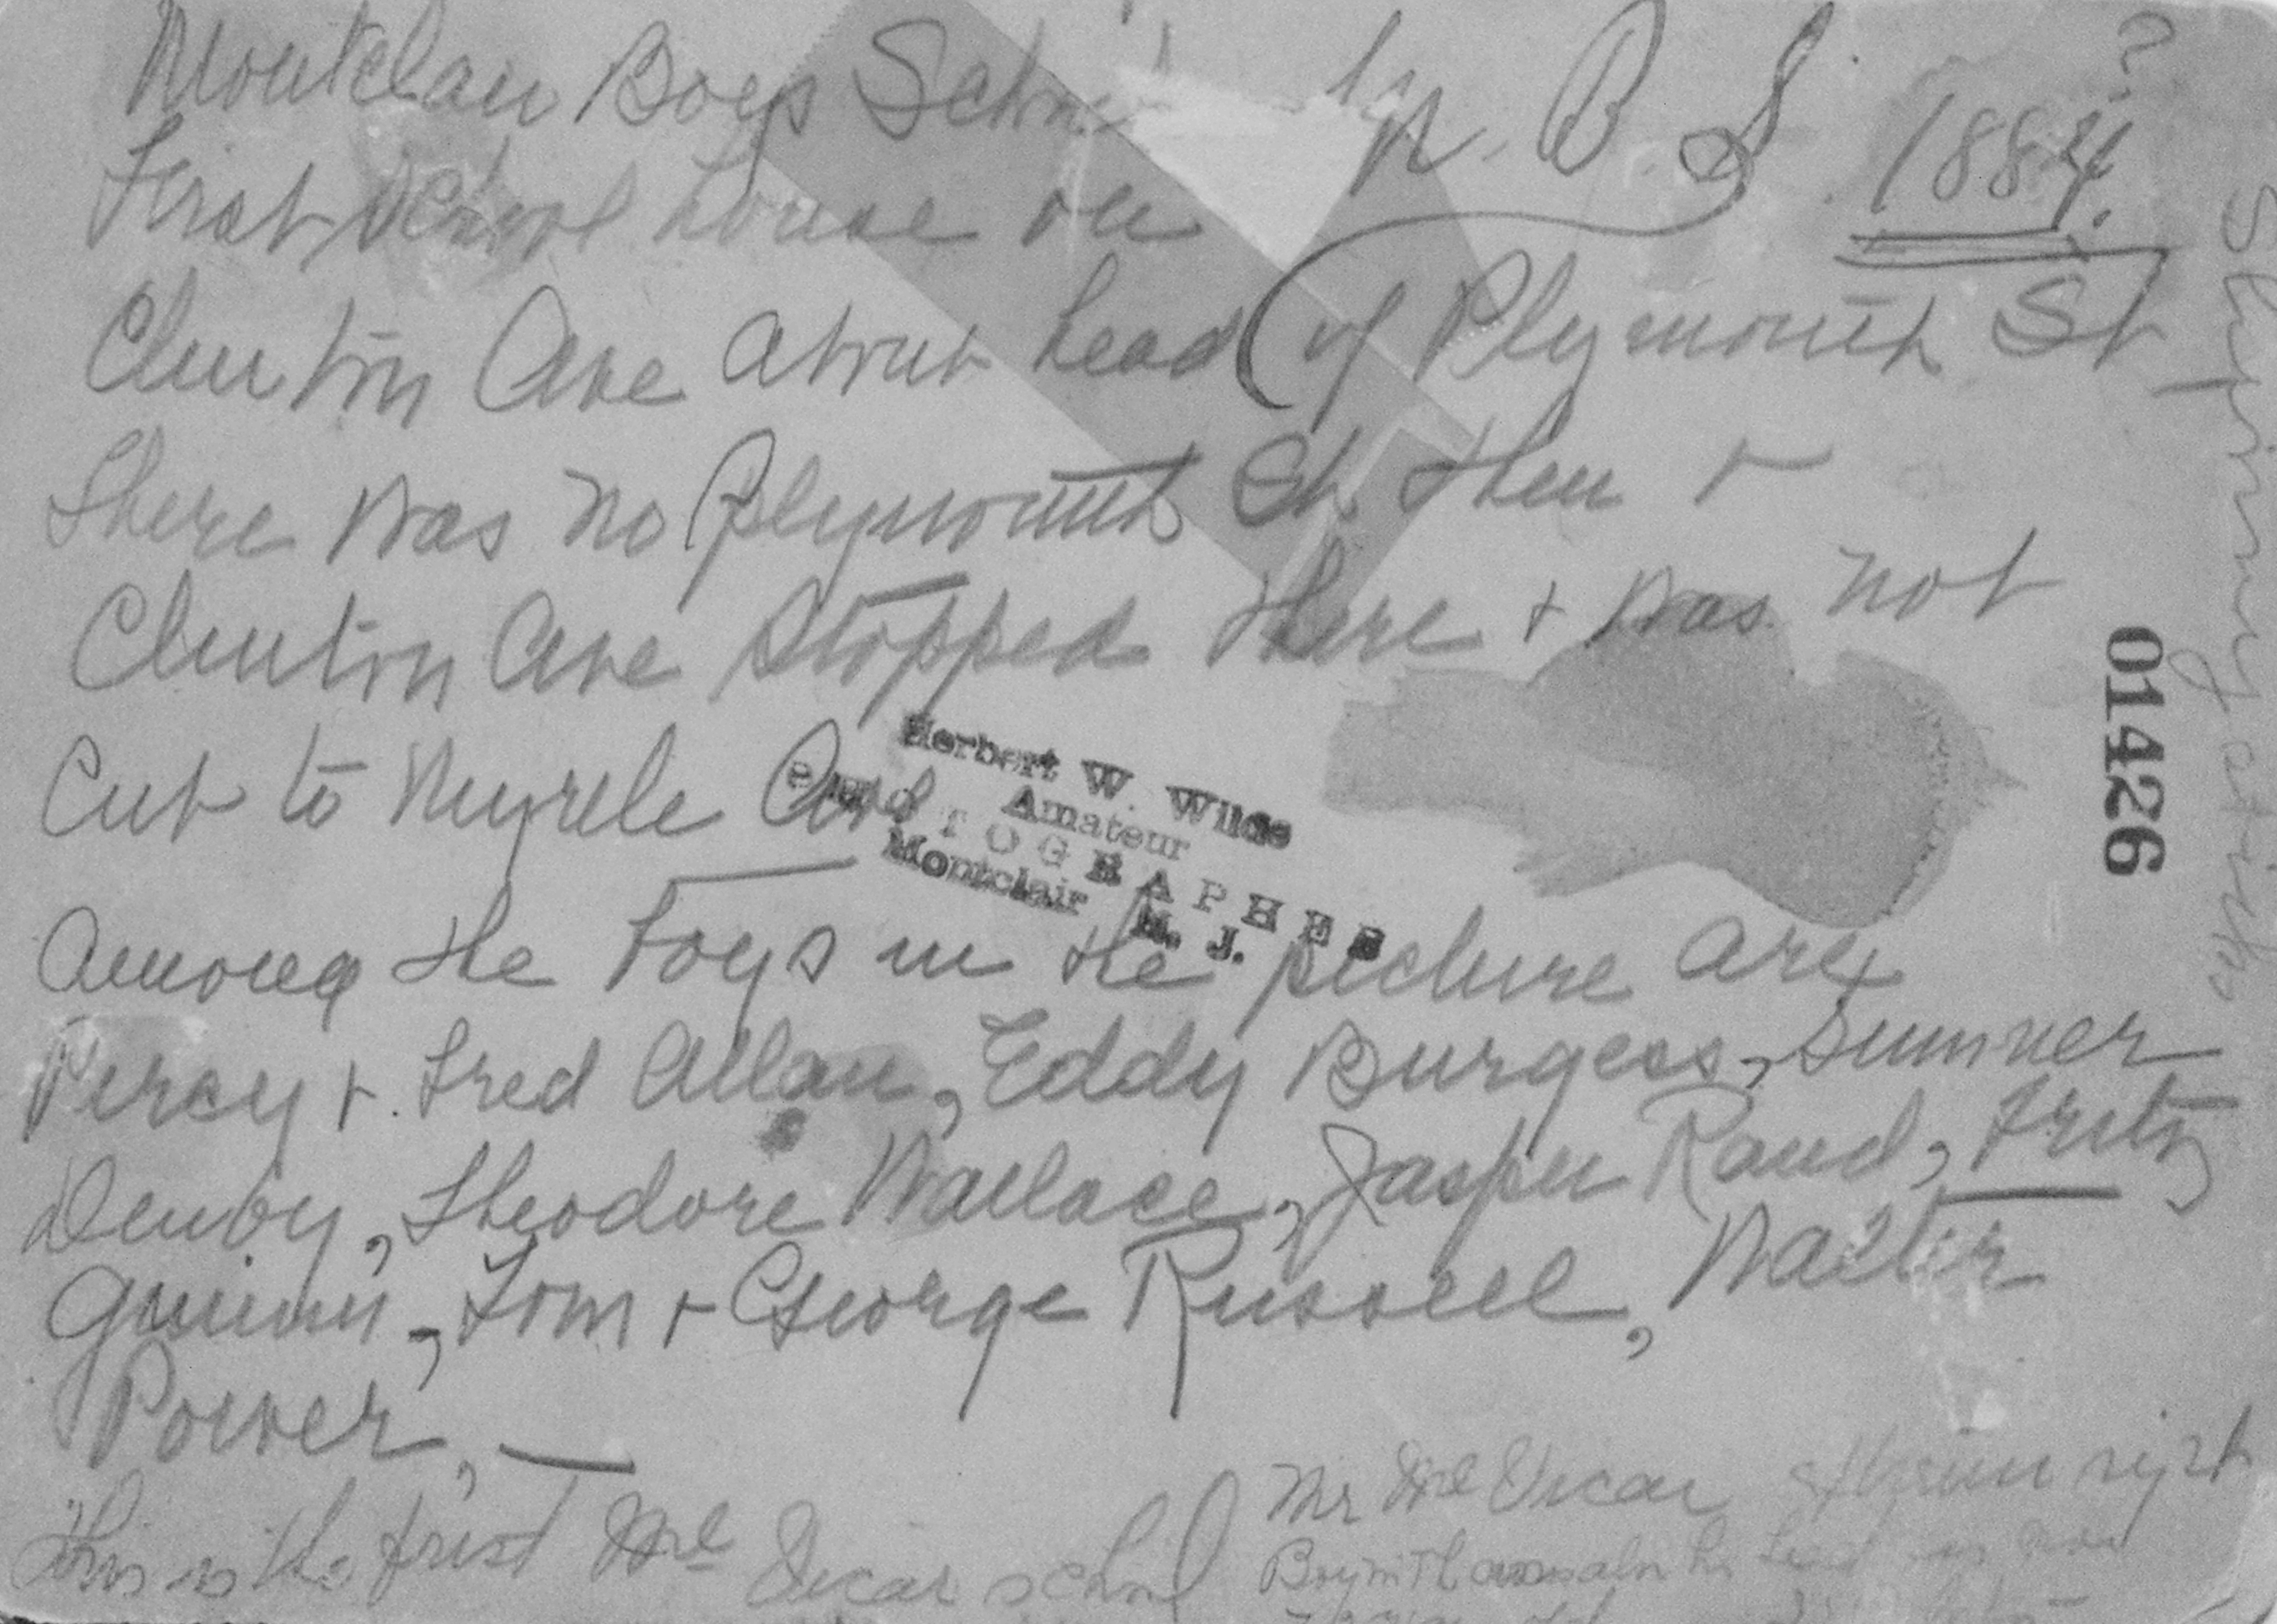 Montclair Boys School by N. B. S. 1884?
First School house on
Clinton Ave about head of Plymouth St
There was no Plymouth St. then +
Clinton Ave Stopped there + was not
Cut to Myrtle Ave
Herbert W. Wilde
Amateur
PHOTOGRAPHER
Montclair N. J.
Among the boys in the picture are
Percy + Fred Allan, Eddy Burgess, Sumner
Denby, Theodore Wallace, Jasper Rand, Fritz
Guinin, Tom + George Russell, Walter
Power,
This is the first McVicar school
Mr McVicar right
01426